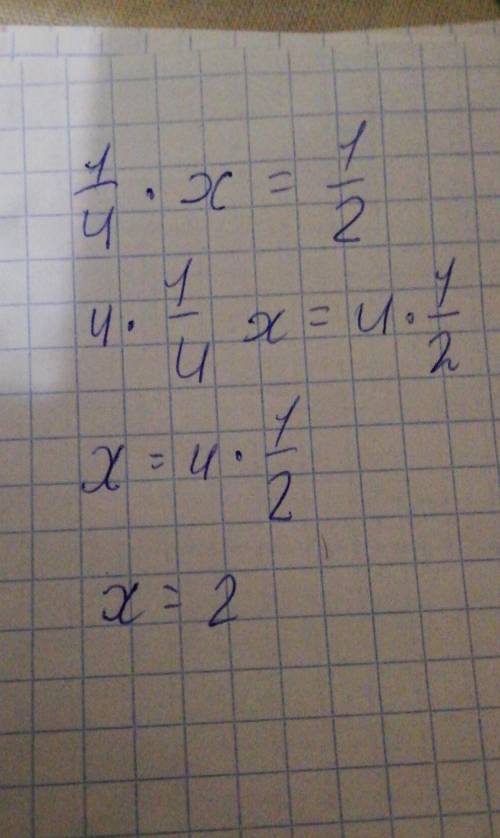 1/4 · x = 1/2
4 · 1/4 x = 4 · 1/2
x = 4 · 1/2
x = 2